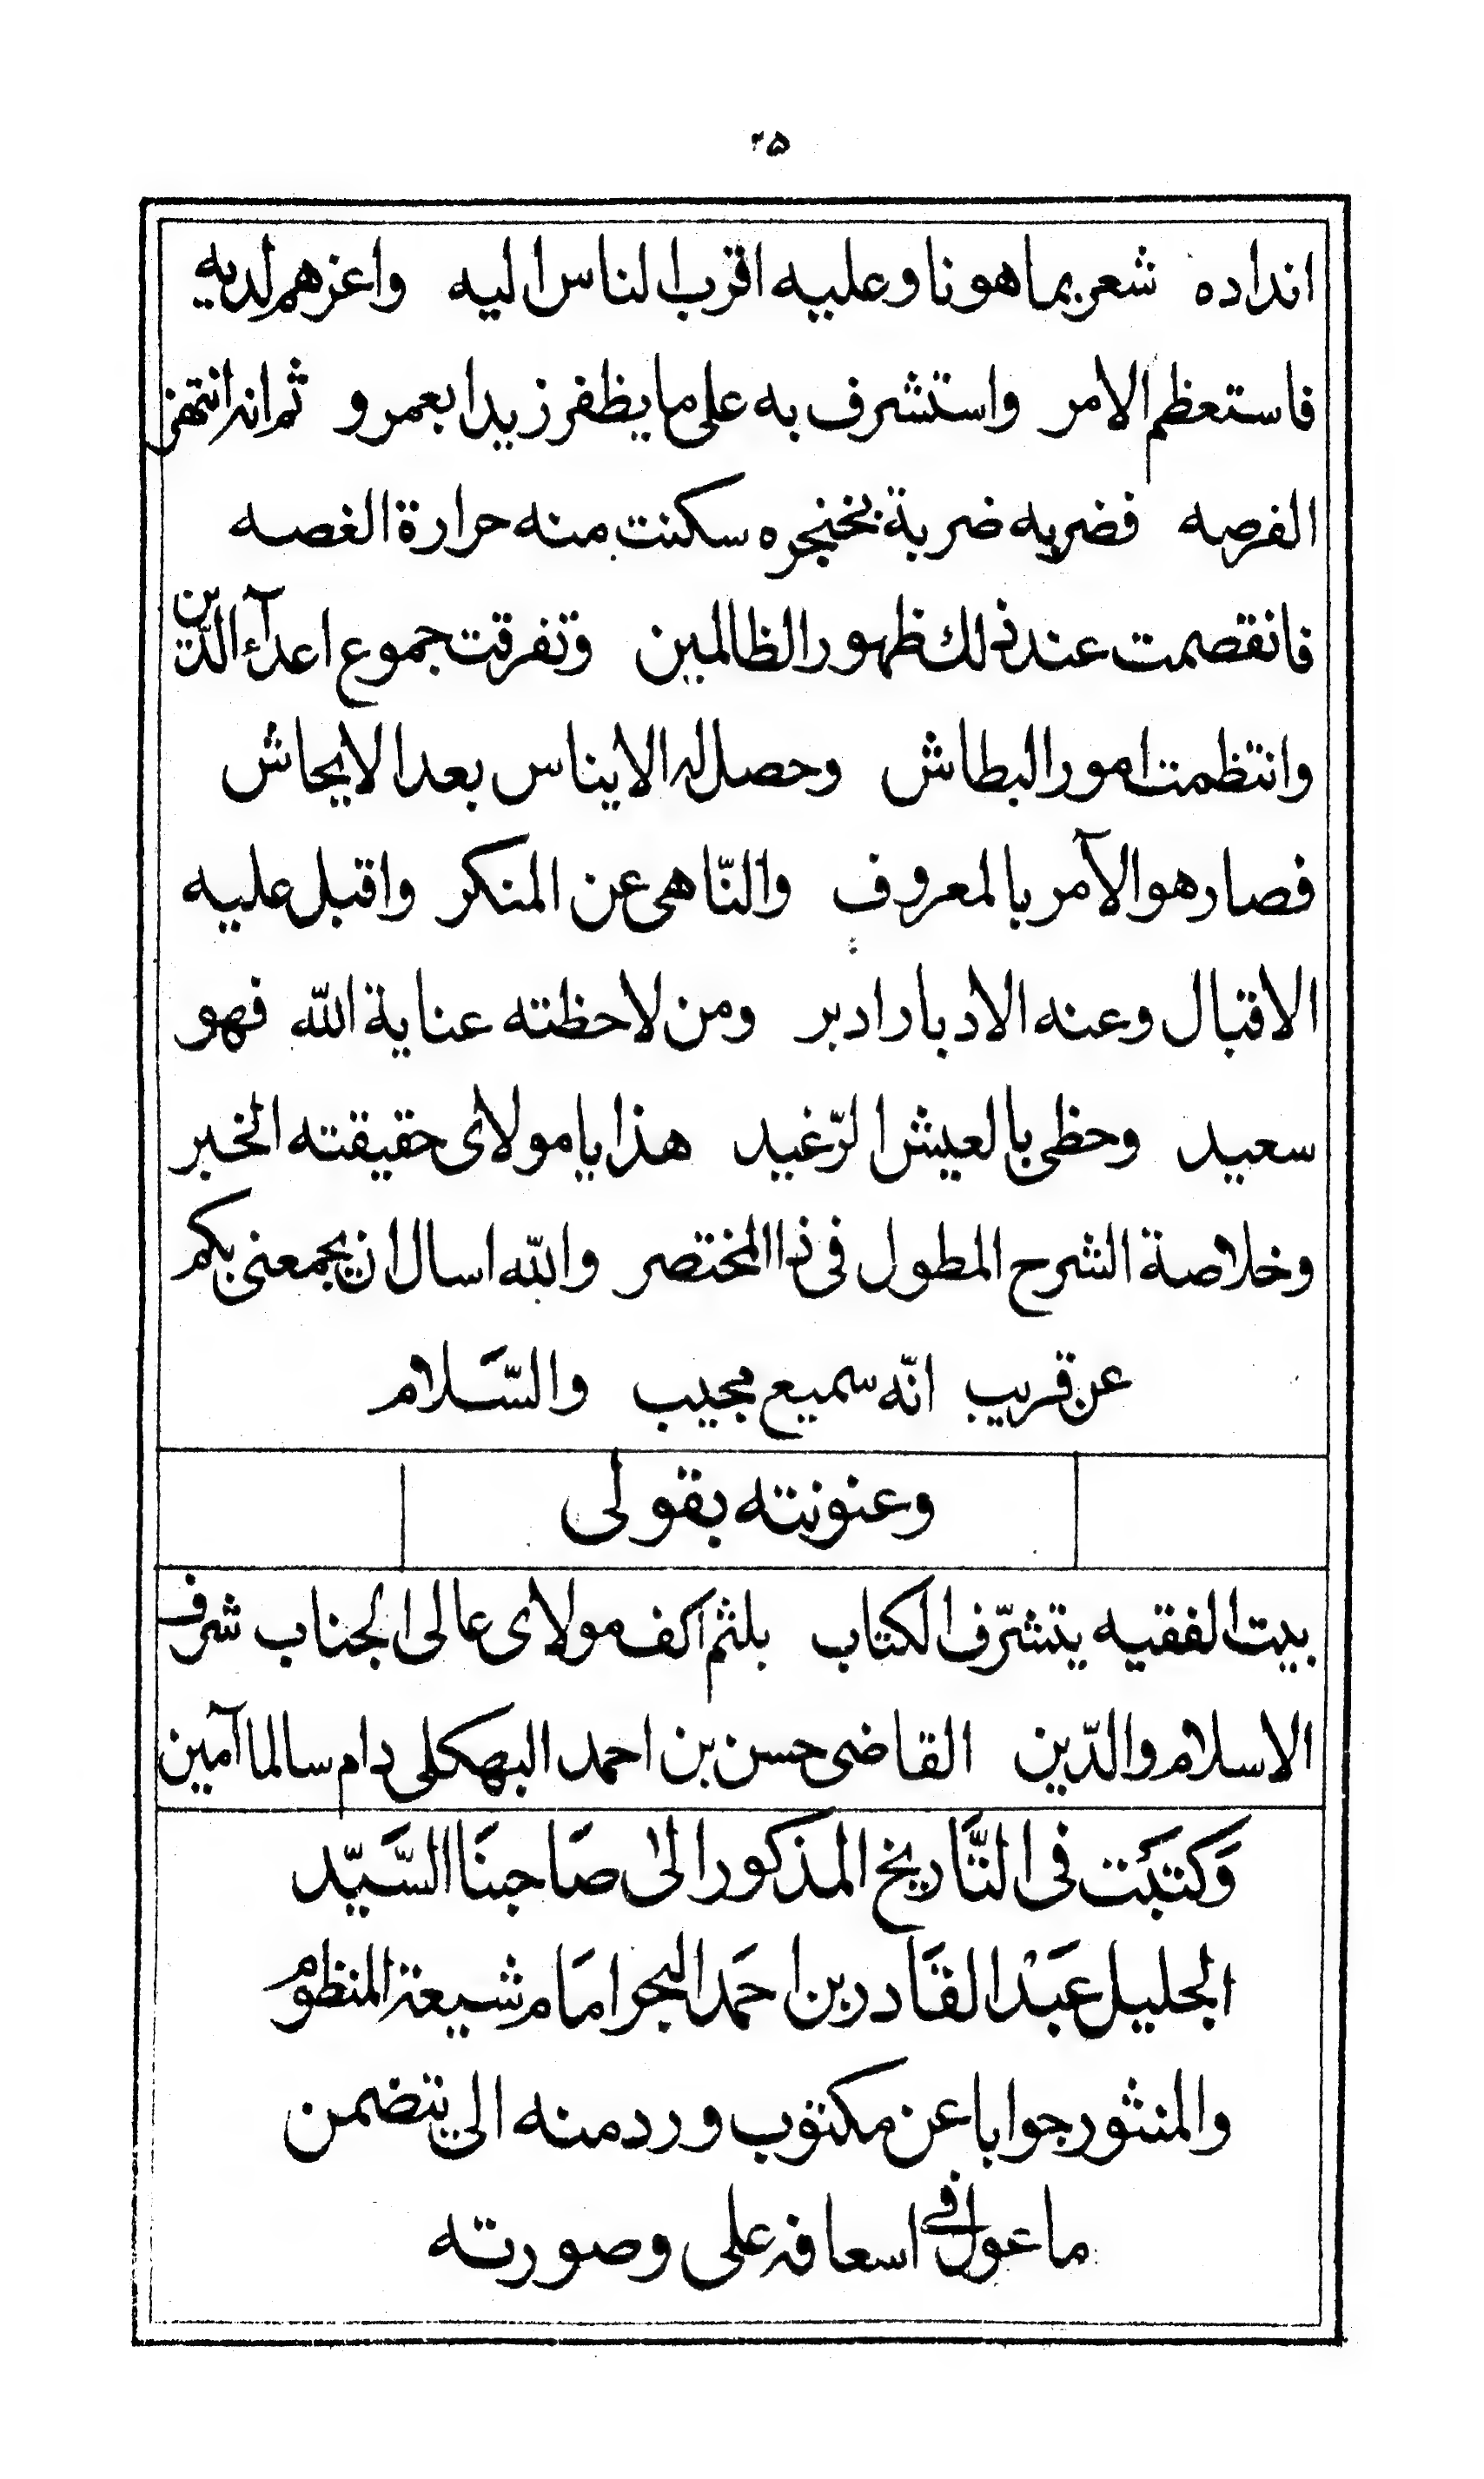 ٢٥
انداده شعر بما هو ناو عليه اقرب الناس اليه واعزهم لديه
فاستعظم الامر واستشرف به على ما يظفر زيدا بعمرو ثم انه انتهز
الفرصه فضربه ضربة بخنجره سكنت منه حرارة الغصه
فانقصمت عند ذلك ظهور الظالمين وتفرقت جموع اعدآء الدّين
وانتظمت امور البطاش وحصل له الايناس بعد الايحاش
فصار هو الآمر بالمعروف والنّاهى عن المنكر واقبل عليه
الاقبال وعنه الادبار ادبر ومن لاحظته عناية الله فهو
سعيد وحظى بالعيش الرّغيد هذا يا مولاى حقيقته الخبر
وخلاصة الشرح المطول فى ذا المختصر والله اسال ان يجمعنى بكم
عن قريب انّه سميع مجيب والسَّلام
وعنونته بقولى
بيت الفقيه يتشرّف الكتاب بلثم اكف مولاى عالى الجناب شرف
الاسلام والدّين القاضى حسن بن احمد البهكلى دام سالما آمين
وَكتبَت فى التَّاريخ المذكور الىٰ صَاحبنَا السَّيّد
الجليل عَبْد القَادر بن احَمد البحر امَام شيعة المنظوم
والمنثور جوابا عن مكتوب ورد منه الى يتضمن
ما عول فى اسعافه على وصورته